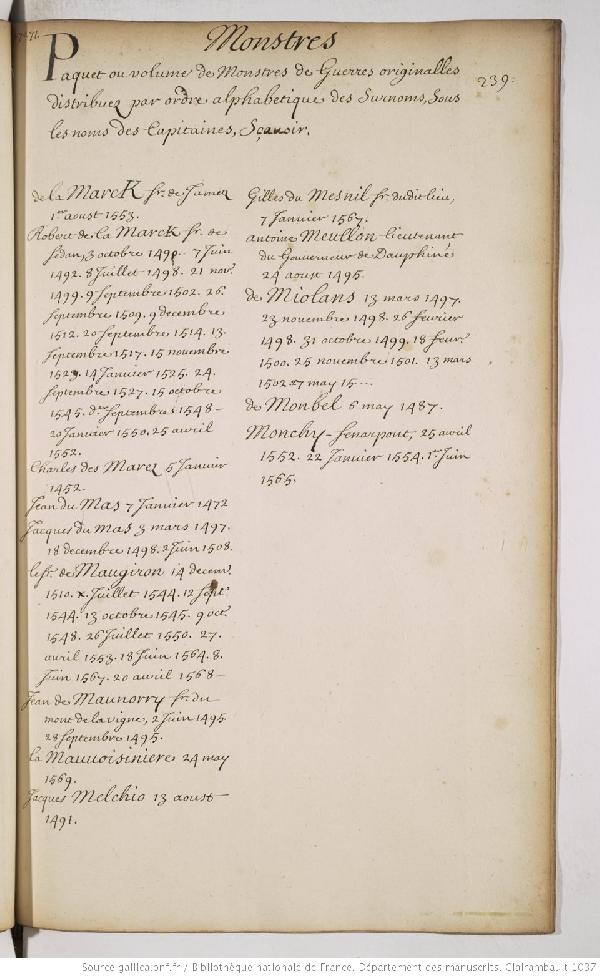 Monstres
239.
Paquet ou volume de Monstres de Guerres originalles
distribuez par ordre alphabetique des Surnoms, Sous
les noms des Capitaines, Sçavoir.
de la Marck sr. de Jamez
1er aoust 1553.
Robert de la Marck sr. de
Sedan, 3 octobre 1490. 7 Juin
1492. 8 Juillet 1498. 21 nov.
1499. 9 Septembre 1502. 26.
Septembre 1509. 9 decembre
1512. 20 Septembre 1514. 13.
Septembre 1517. 15 novembre
1523. 14 Janvier 1525. 24.
Septembre 1527. 15 octobre
1545. Septembre 1548-
20 Janvier 1550. 25 avril
1552.
Charles des Marez 5 Janvier
1452.
Jean du Mas 7 Janvier 1472
Jacques du Mas 3 mars 1497.
18 decembre 1498. 2 Juin 1508.
le sr. de Maugiron 14 decemr.
1510. x. Juillet 1544. 12 Septr.
1544. 13 octobre 1545. 9 oct.
1548. 26 Juillet 1550. 27.
avril 1553. 18 Juin 1564. 8.
Juin 1567. 20 avril 1568-
Jean de Maunorry sr. du
mont de la vigne, 2 Juin 1495
28 Septembre 1495.
la Mauvoisiniere 24 may
1569.
Jacques Melchio 13 aoust
1491.
Gilles du Mesnil sr. dudit lieu,
7 Janvier 1567.
antoine Meullon lieutenant
du Gouverneur de Dauphiné
24 aoust 1495.
de Miolans 13 mars 1497.
23 novembre 1498. 26 fevrier
1498. 31 octobre 1499. 18 fevr.
1500. 25 novembre 1501. 13 mars
1502. 27 may 15...
de Monbel 5 may 1487.
Monchy-Senarpont, 25 avril
1552. 22 Janvier 1554. 1er Juin
1565.
Source gallica.bnf.fr / Bibliothèque nationale de France. Département des manuscrits. Clairambault 1037